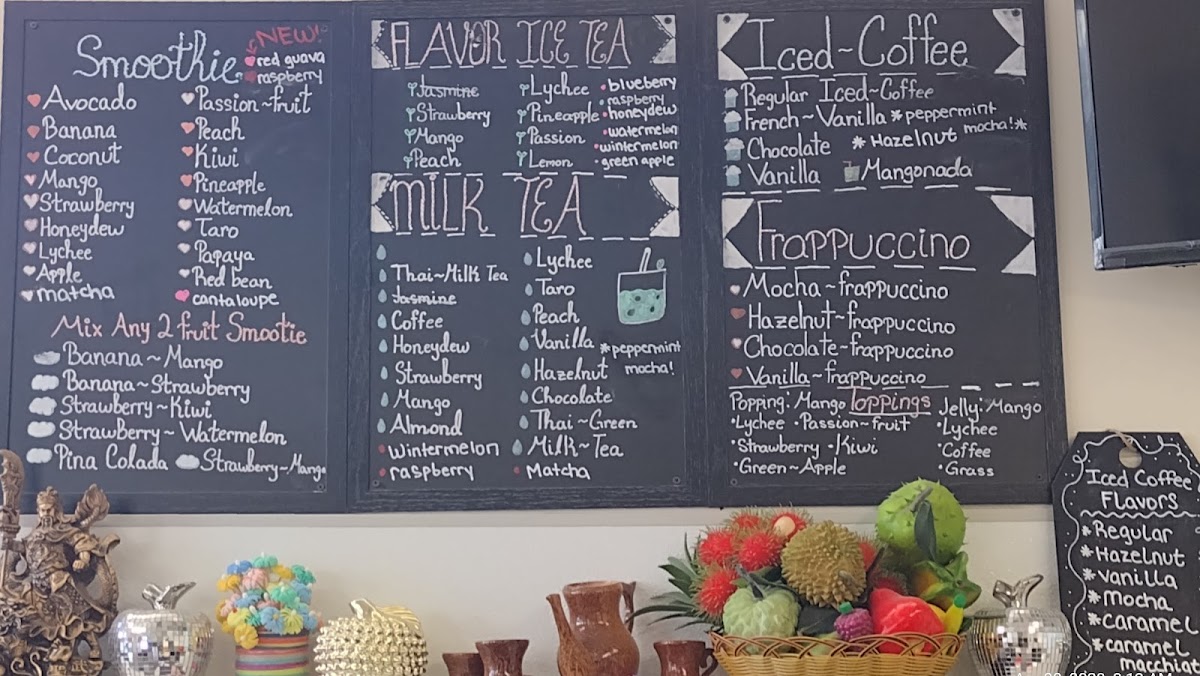 Smoothie
NEW!
red guava
raspberry
Avocado
Banana
Coconut
Mango
Strawberry
Honeydew
Lychee
Apple
matcha
Passion~fruit
Peach
Kiwi
Pineapple
Watermelon
Taro
Papaya
Red bean
cantaloupe
Mix Any 2 fruit Smootie
Banana~Mango
Banana~Strawberry
Strawberry~Kiwi
Strawberry~Watermelon
Pina Colada
Strawberry~Mango
FLAVOR ICE TEA
Jasmine
Strawberry
Mango
Peach
Lychee
Pineapple
Passion
Lemon
blueberry
raspberry
honeydew
watermelon
wintermelon
green apple
MILK TEA
Thai~Milk Tea
Jasmine
Coffee
Honeydew
Strawberry
Mango
Almond
Wintermelon
raspberry
Lychee
Taro
Peach
Vanilla
Hazelnut
Chocolate
Thai~Green
Milk~Tea
Matcha
*peppermint
mocha!
Iced~Coffee
Regular Iced~Coffee
French~Vanilla *peppermint
mocha!*
Chocolate *Hazelnut
Vanilla Mangonada
Frappuccino
Mocha~frappuccino
Hazelnut~frappuccino
Chocolate~frappuccino
Vanilla~frappuccino
Toppings
Popping: Mango
•Lychee •Passion~fruit
•Strawberry •Kiwi
•Green~Apple
Jelly: Mango
•Lychee
•Coffee
•Grass
Iced Coffee
Flavors
*Regular
*Hazelnut
*vanilla
*Mocha
*caramel
*caramel
macchiat